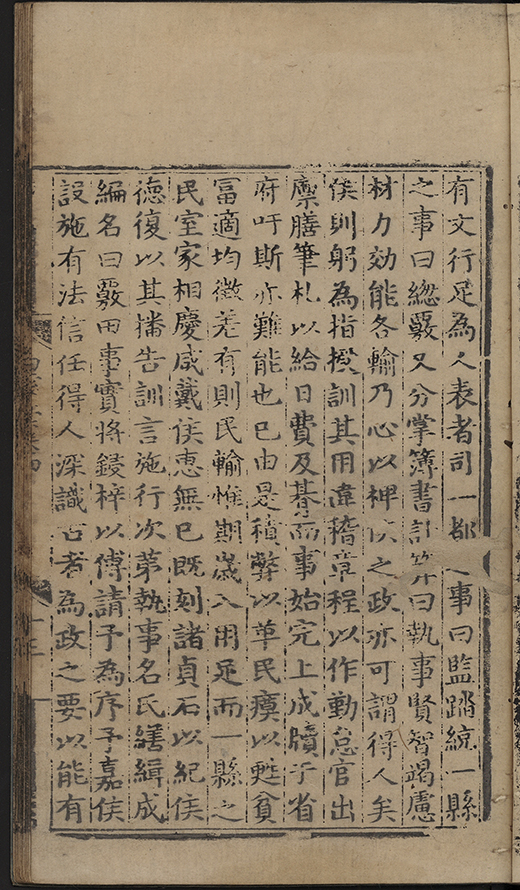 有文行足為人表者司一都之事曰監踏統一縣
之事曰總覈又分掌簿書計筭曰執事賢智竭慮
材力効能各輸乃心以裨侯之政亦可謂得人矣
侯則躬為指授訓其用違稽章程以作勤怠官出
廪膳筆札以給日費及朞而事始完上成牘于省
府吁斯亦難能也已由是積弊以革民瘼以甦貧
冨適均徵差有則民輸惟期歲入用足而一縣之
民室家相慶咸戴侯惠無已既刻諸貞石以紀侯
德復以其播告訓言施行次苐執事名氏繕緝成
編名曰覈田事實將鋟梓以傳請予為序予嘉侯
設施有法信任得人深識古者為政之要以能有